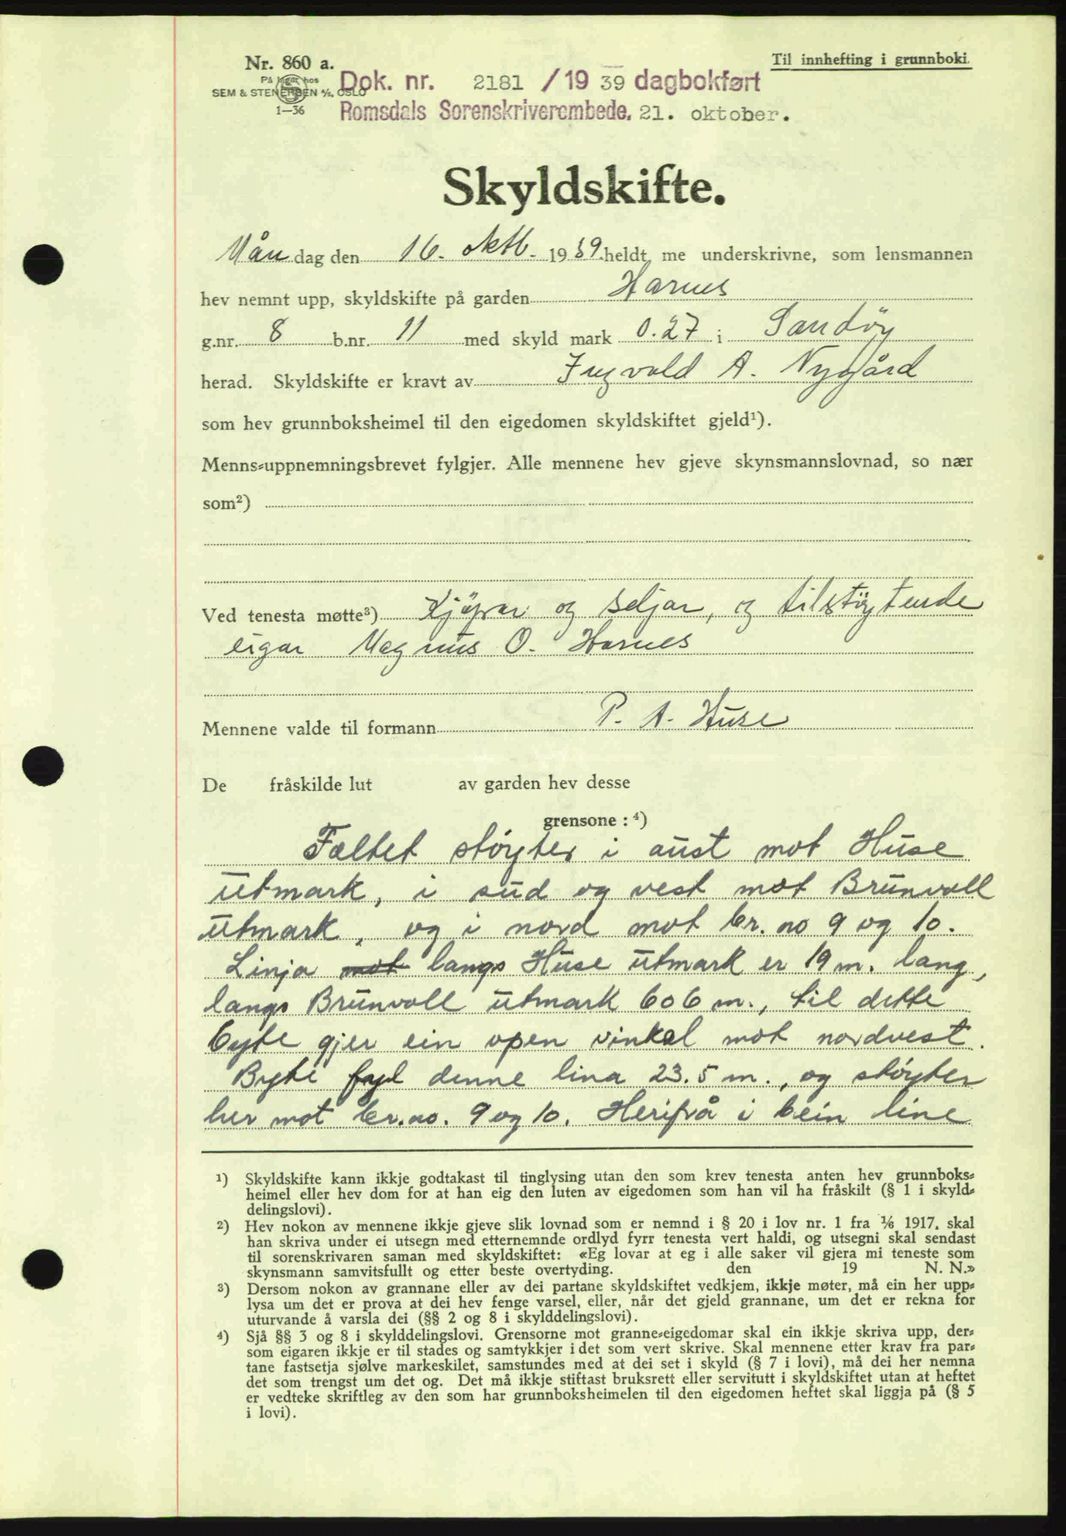 Nr. 860 a.
Til innhefting i grunnboki.
På lager hos
SEM & STENERSEN A/S, OSLO
1—36
Dok. nr. 2181 /19 39 dagbokført
Romsdals Sorenskriverembede, 21. oktober.
Skyldskifte.
Mån dag den 16. oktb. 1939. heldt me underskrivne, som lensmannen
hev nemnt upp, skyldskifte på garden Harnes
g.nr. 8 b.nr. 11 med skyld mark 0.27 i Sandöy
herad. Skyldskifte er kravt av Ingvald A. Nygård
som hev grunnboksheimel til den eigedomen skyldskiftet gjeld¹).
Menns⸗uppnemningsbrevet fylgjer. Alle mennene hev gjeve skynsmannslovnad, so nær
som²)
Ved tenesta møtte³) Kjöpar og seljar, og tilstöytende
eigar Magnus O. Harnes
Mennene valde til formann P. A. Huse
De fråskilde lut av garden hev desse
grensone : ⁴)
Fæltet stöyter i aust mot Huse
utmark, i sud og vest mot Brunvoll
utmark, og i nord mot br. no 9 og 10.
Linja mot langs Huse utmark er 19 m. lang,
langs Brunvoll utmark 606 m., til dette
byte gjer ein open vinkel mot nordvest.
Byte fyl denne lina 23.5 m., og stöyter
her mot br. no. 9 og 10. Herifrå i bein line
¹) Skyldskifte kann ikkje godtakast til tinglysing utan den som krev tenesta anten hev grunnboks⸗
heimel eller hev dom for at han eig den luten av eigedomen som han vil ha fråskilt (§ 1 i skyld⸗
delingslovi).
²) Hev nokon av mennene ikkje gjeve slik lovnad som er nemnd i § 20 i lov nr. 1 fra ⅙ 1917, skal
han skriva under ei utsegn med etternemnde ordlyd fyrr tenesta vert haldi, og utsegni skal sendast
til sorenskrivaren saman med skyldskiftet: «Eg lovar at eg i alle saker vil gjera mi teneste som
skynsmann samvitsfullt og etter beste overtyding. den 19 N. N.»
³) Dersom nokon av grannane eller av dei partane skyldskiftet vedkjem, ikkje møter, må ein her upp⸗
lysa um det er prova at dei hev fenge varsel, eller, når det gjeld grannane, um det er rekna for
uturvande å varsla dei (§§ 2 og 8 i skylddelingslovi).
⁴) Sjå §§ 3 og 8 i skylddelingslovi. Grensorne mot granne⸗eigedomar skal ein ikkje skriva upp, der⸗
som eigaren ikkje er til stades og samtykkjer i det som vert skrive. Skal mennene etter krav fra par⸗
tane fastsetja sjølve markeskilet, samstundes med at dei set i skyld (§ 7 i lovi), må dei her nemna
det som trengst um det og. Det må ikkje stiftast bruksrett eller servitutt i skyldskiftet utan at heftet
er vedteke skriftleg av den som har grunnboksheimelen til den eigedomen heftet skal liggja på (§ 5
i lovi).